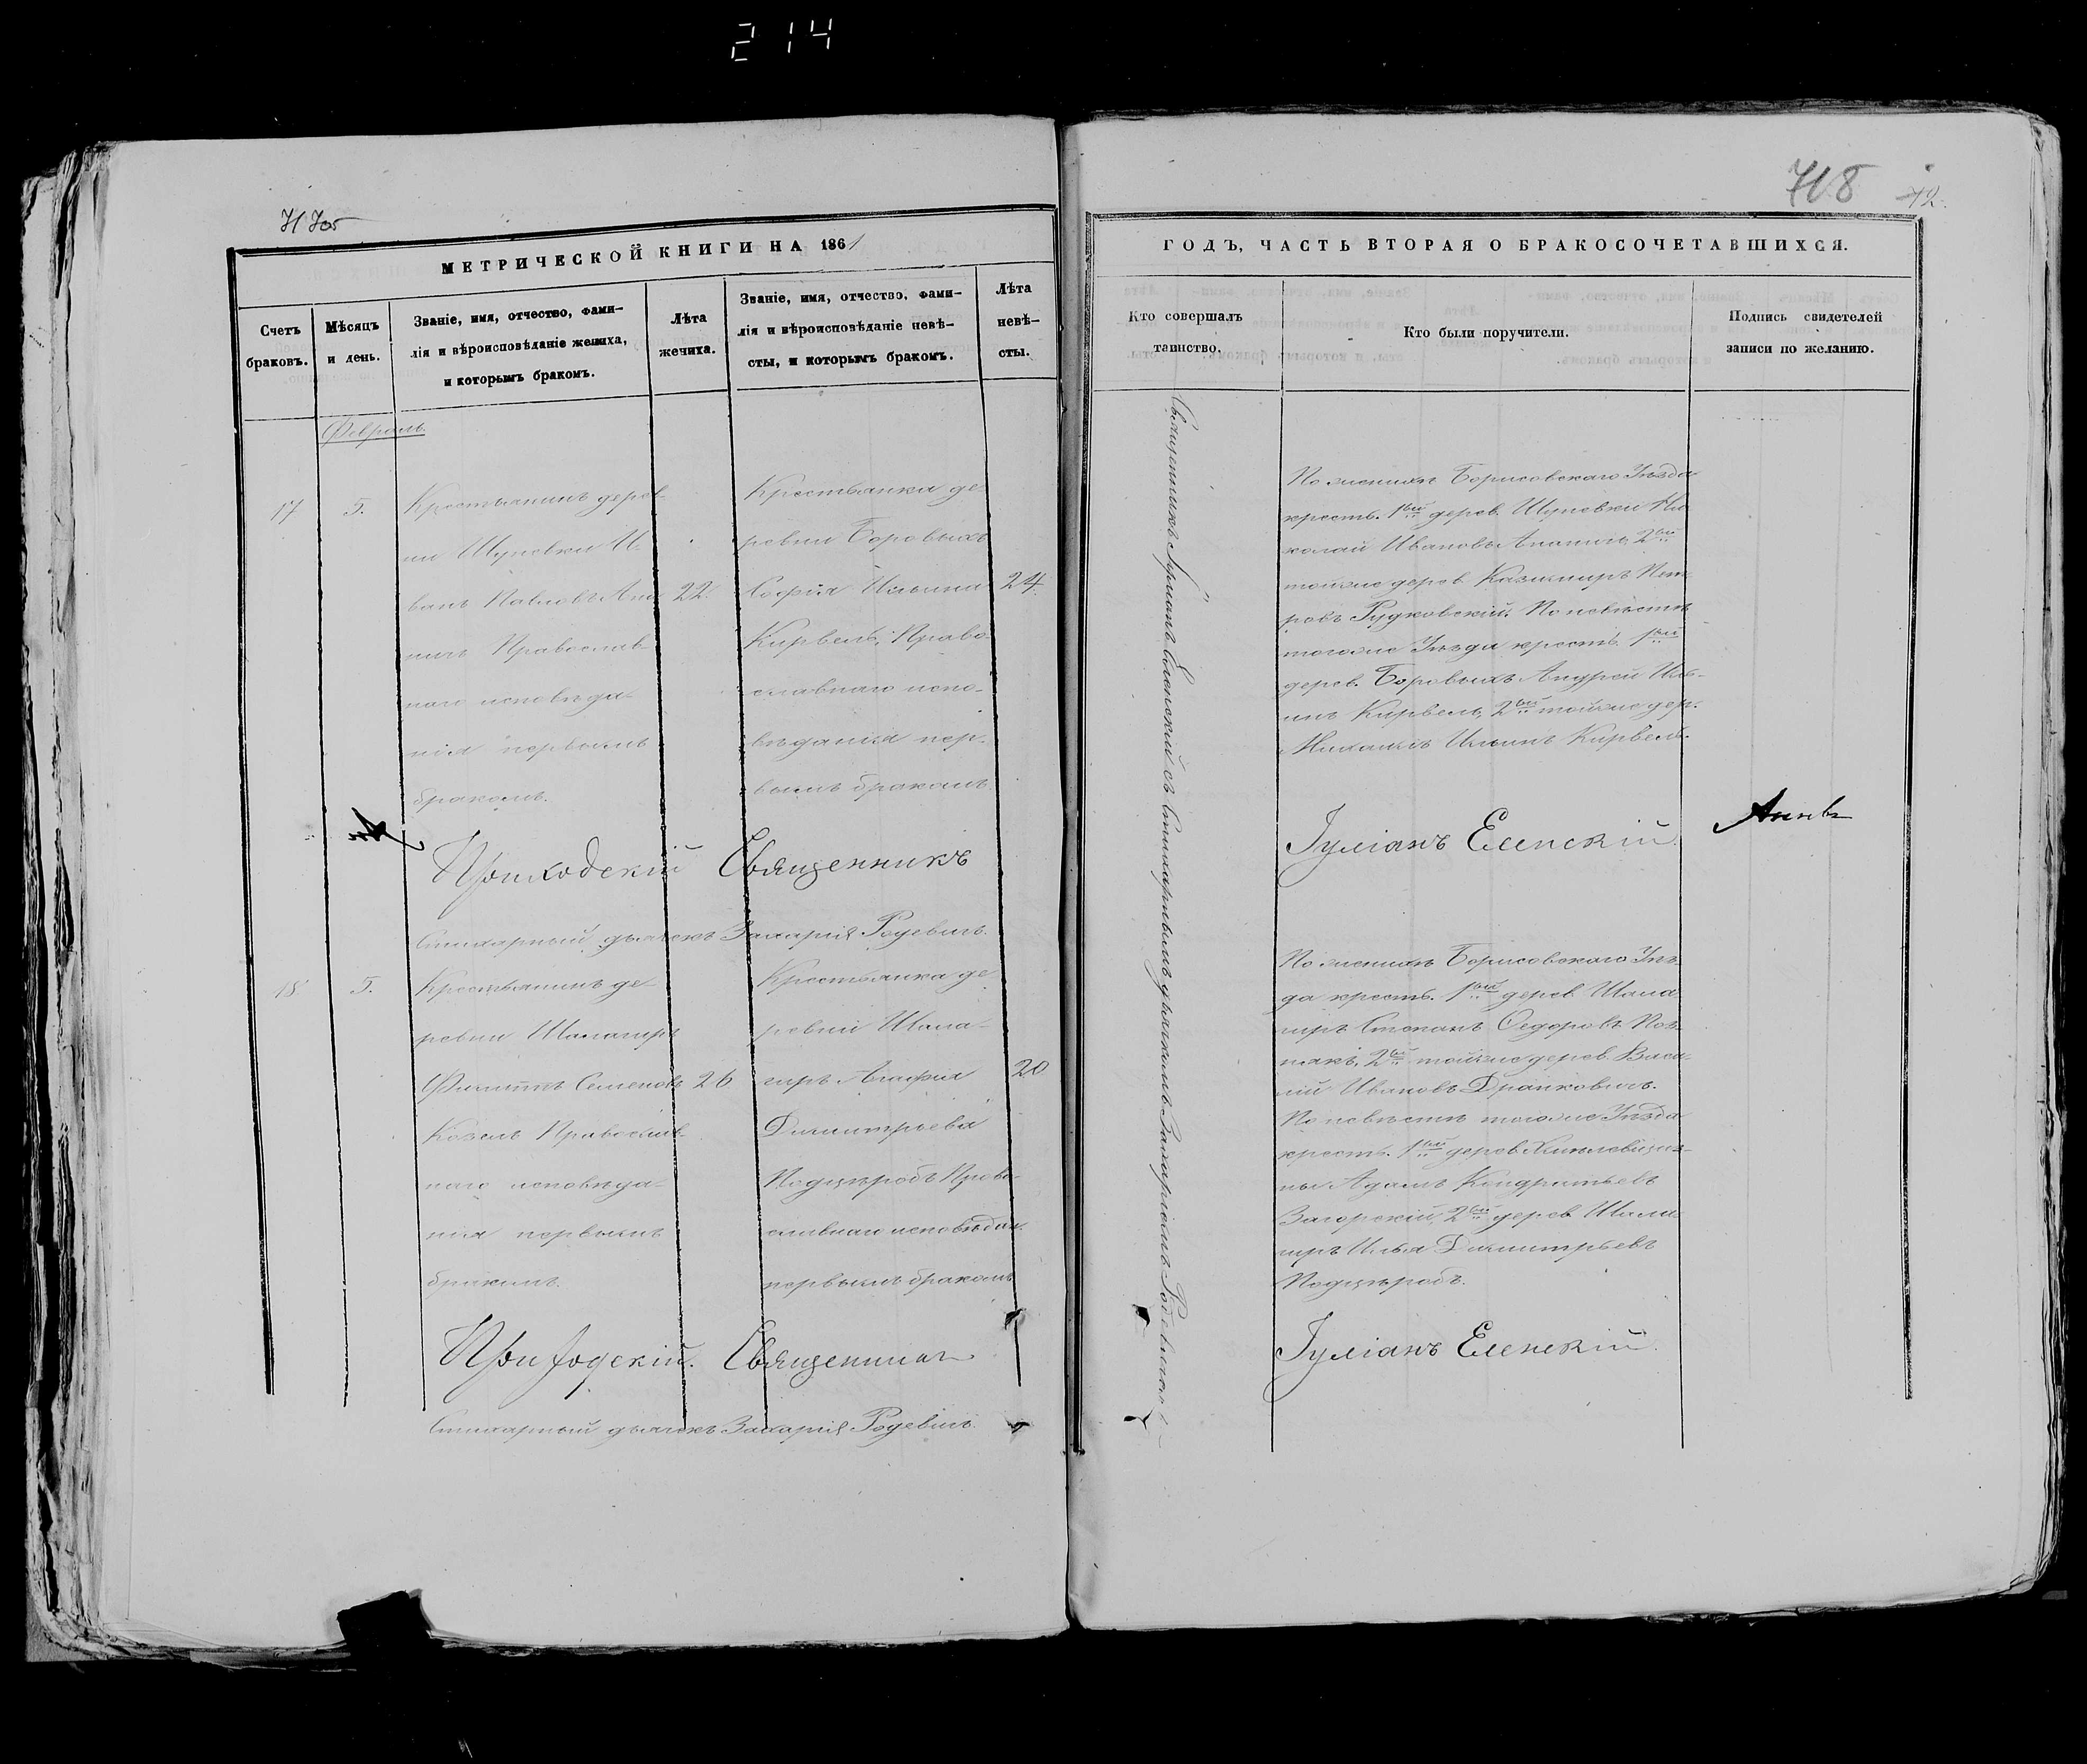 214
МЕТРИЧЕСКОЙ КНИГИ НА 1861
Счетъ браковъ.
Мѣсяцъ и день.
Званіе, имя, отчество, фами-
лія и вѣроисповѣданіе жениха,
и которымъ бракомъ.
Лѣта
жениха.
Званіе, имя, отчество, фами-
лія и вѣроисповѣданіе невѣ-
сты, и которымъ бракомъ.
Лѣта
невѣ-
сты.
Февраль.
17
5.
Крестьянинъ дерев-
ни Шуневки И-
ванъ Павловъ
22.
Православ-
наго исповѣда-
нія первымъ
бракомъ.
Крестьянка де-
ревни Боровыхъ
Софія Ильина
24.
Кирвель, Право-
славнаго испо-
вѣданія пер-
вымъ бракомъ.
Приходскій Священникъ
Стихарный дьячекъ Захарія Родевичъ.
18
5.
Крестьянинъ де-
ревни
Филиппъ Семеновъ
26
Козелъ Православ-
наго исповѣда-
нія первымъ
бракомъ.
Крестьянка де-
ревни
Агафія
20
Димитрьева
Православнаго исповѣдан.
первымъ бракомъ
Приходскій Священникъ
Стихарный дьячекъ Захарія Родевичъ.
718
72
ГОДЪ, ЧАСТЬ ВТОРАЯ О БРАКОСОЧЕТАВШИХСЯ.
Кто совершалъ
таинство.
Кто были поручители.
Подпись свидетелей
записи по желанію.
Священникъ Іуліанъ Еленскій съ Стихарнымъ дьячкомъ Захаріемъ Родевичемъ
По женихѣ Борисовскаго Уѣзда
крест. 1ый дерев. Шуневки Ни-
колай Ивановъ 2ый
тойже дерев. Казимиръ Пет-
ровъ Рудковскій. По невѣстѣ
тогоже Уѣзда крест. 1ый
дерев. Боровыхъ Андрей Иль-
инъ Кирвель, 2ый тойже дер.
Михаилъ Ильинъ Кирвель.
Іуліанъ Еленскій
По женихѣ Борисовскаго Уѣз-
да крест. 1ый дерев.
Степанъ Ѳедоровъ
2ый тойже дерев. Васи-
лій Ивановъ Драпковичъ.
По невѣстѣ тогоже Уѣзда
крест. 1ый дерев.
Адамъ Кондратьевъ
Загорскій, 2ый дерев.
Илья Димитрьевъ
Іуліанъ Еленскій.